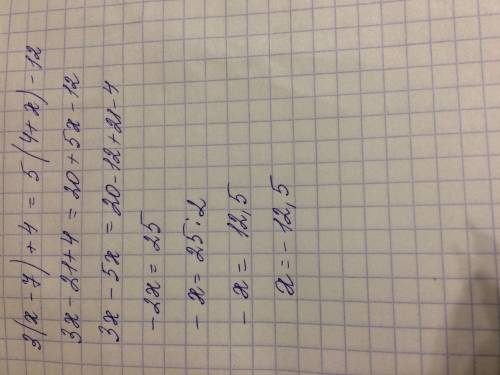 3(x-7)+4=5(4+x)-12
3x-21+4=20+5x-12
3x-5x=20-12+21-4
-2x=25
-x=25:2
-x=12,5
x=-12,5